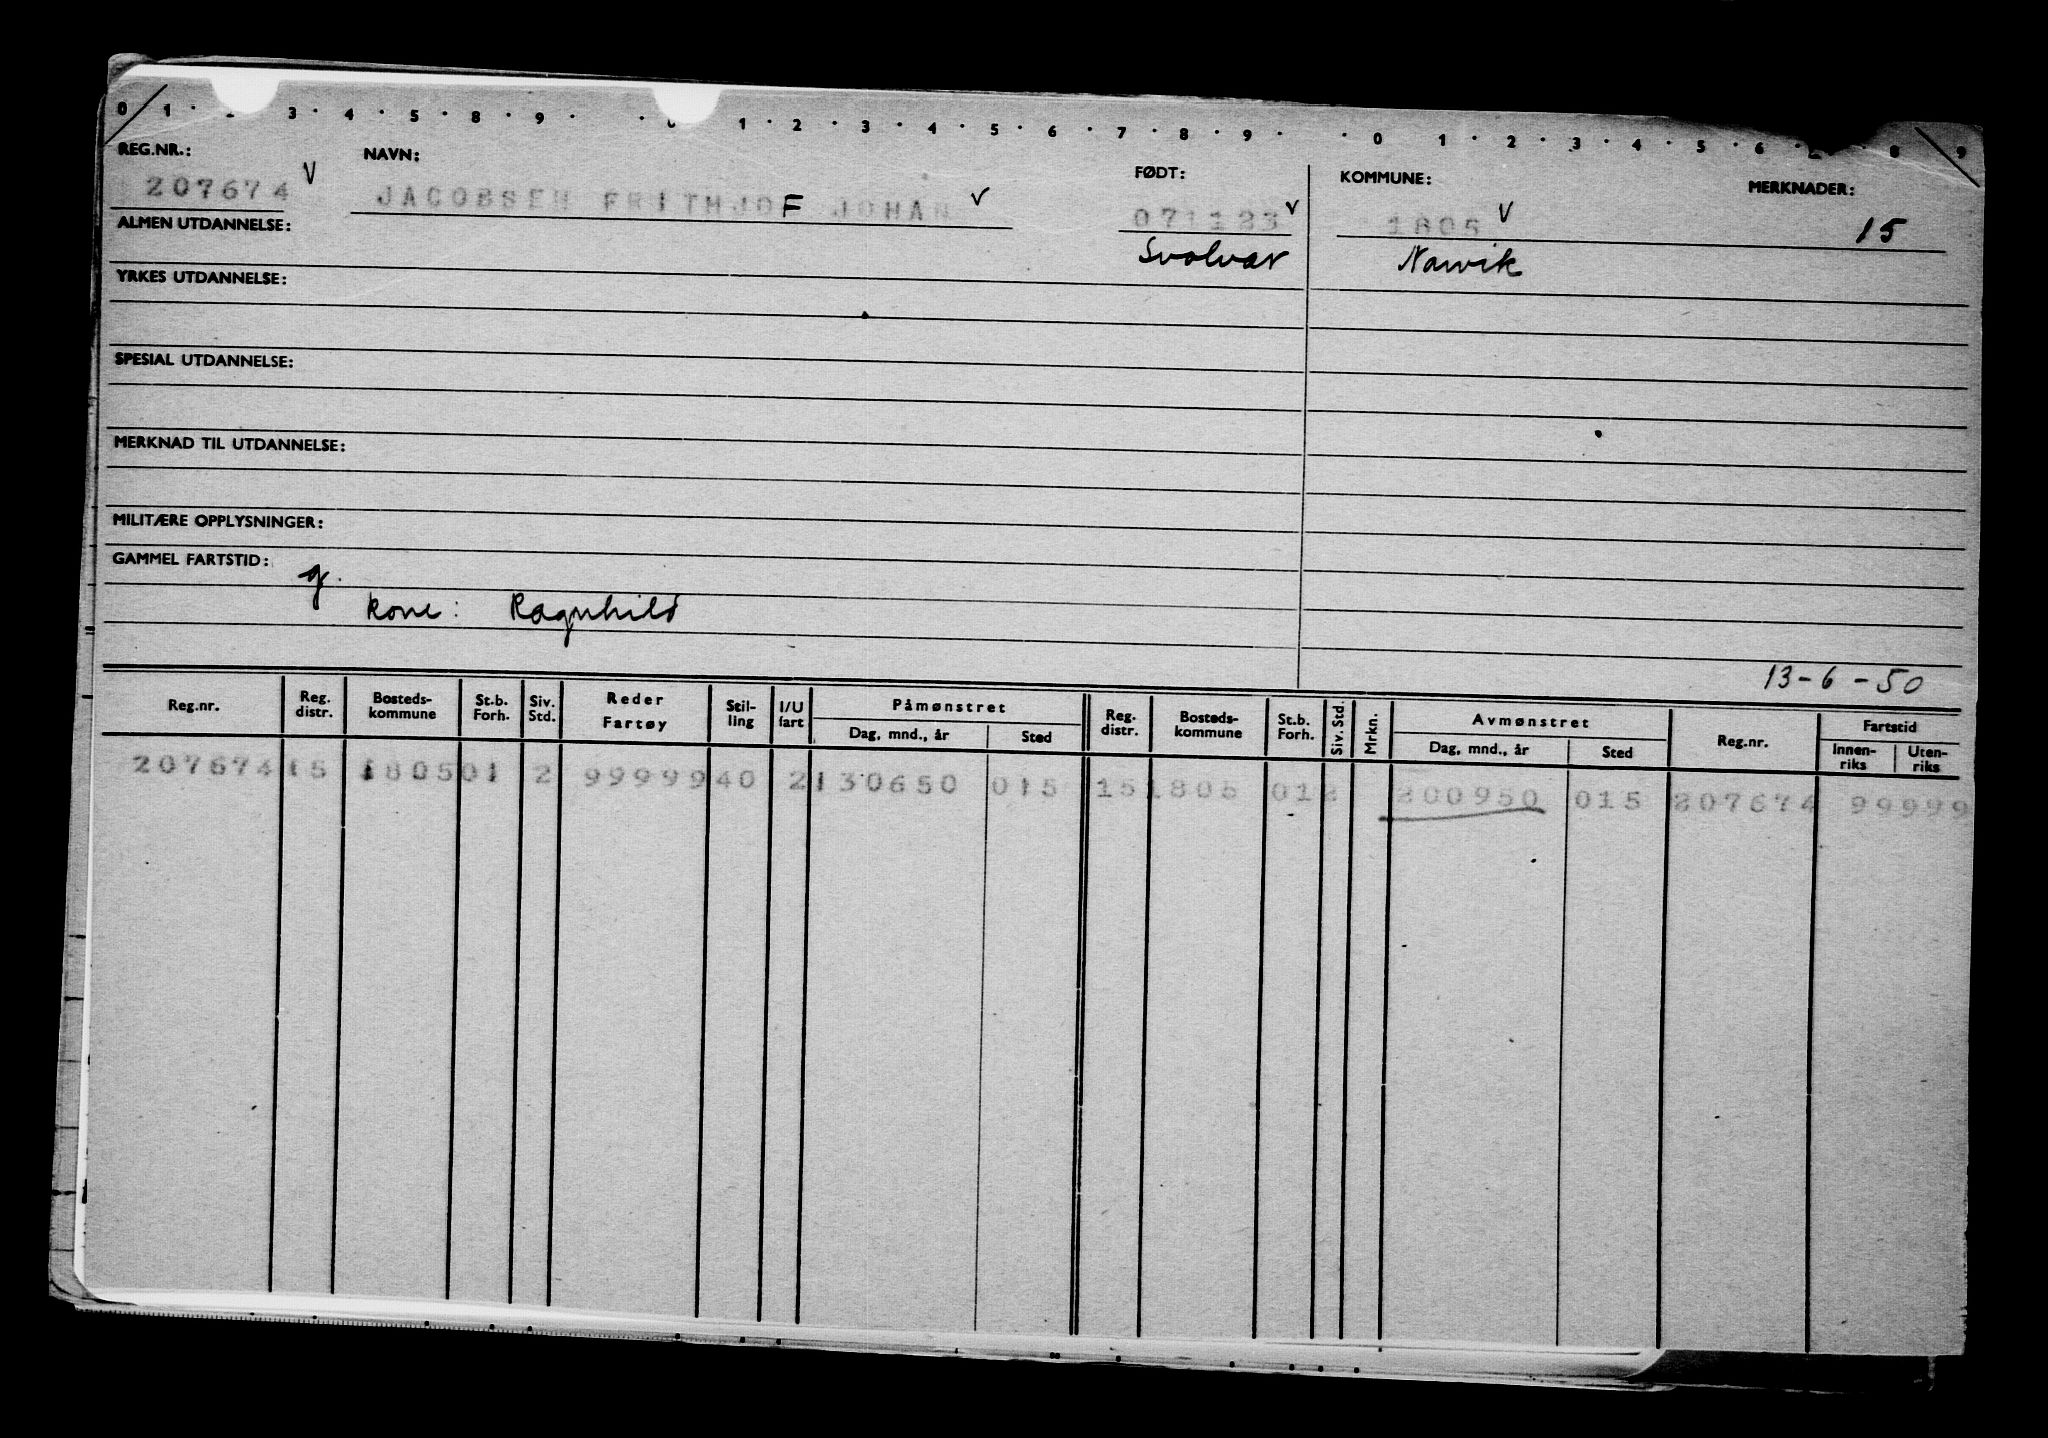 0 1 · 3 · 4 · 5 · 8 · 9 · · 1 · 2 · 3 · 4 · 5 · 6 · 7 · 8 · 9 · · 0 1 · 2 · 3 · 4 · 5 · 6 · 8 9
REG.NR.: NAVN: FØDT: KOMMUNE: MERKNADER:
207674 V JACOBSEN FRITHJOF JOHAN V 071123 V 1805 V 15
ALMEN UTDANNELSE: Svolvær Narvik
YRKES UTDANNELSE:
SPESIAL UTDANNELSE:
MERKNAD TIL UTDANNELSE:
MILITÆRE OPPLYSNINGER:
GAMMEL FARTSTID: g.
kone: Ragnhild
13-6-50
Reg.nr. Reg. distr. Bosteds-kommune St.b. Forh. Siv. Std. Reder Fartøy Stil-ling I/U fart Påmønstret Dag, mnd., år Sted Reg. distr. Bosteds-kommune St.b. Forh. Siv. Std. Mrkn. Avmønstret Dag, mnd., år Sted Reg.nr. Fartstid Innen-riks Uten-riks
207674 15 1805 01 2 99999 40 2 130650 015 15 1805 01 2 200950 015 207674 99999